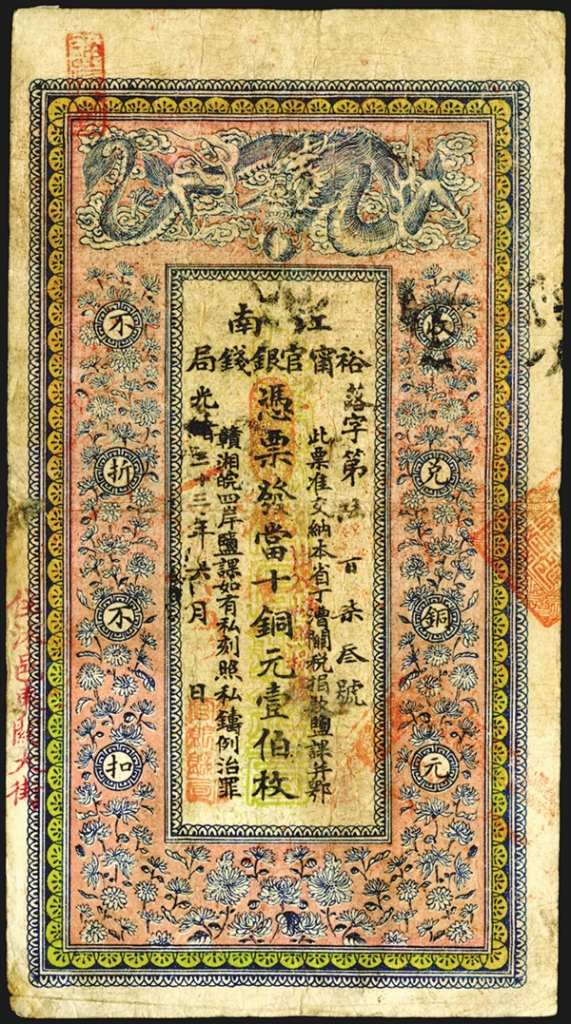 江南
裕甯官銀錢局
收兌銅元
落字第 百柒叁號
此票准交納本省丁漕關稅捐款鹽課并鄂
憑票發當十銅元壹佰枚
贛湘皖四岸鹽課如有私刻照私鑄例治罪
光緒三十三年六月 日
不折不扣
邑東關大街